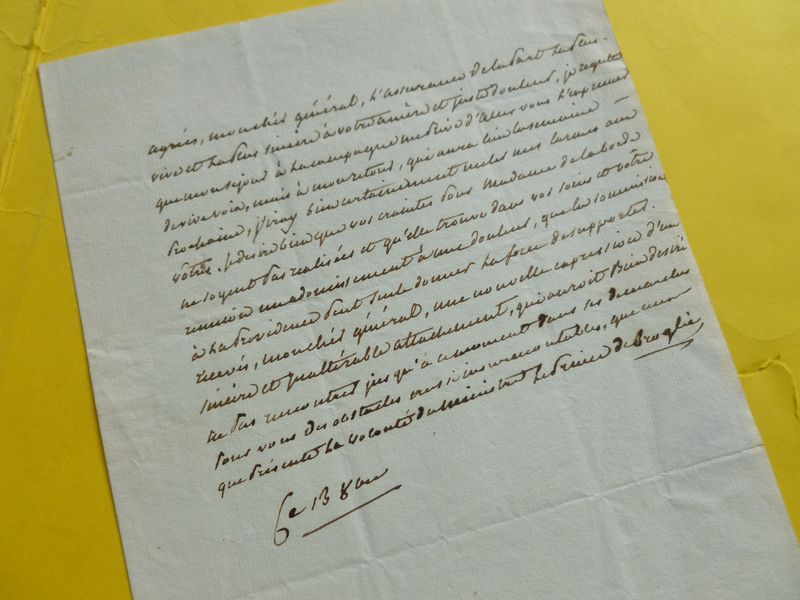 agreés, mon chér général, l'assurance de la part la plus
vive et la plus sincère à votre amère et juste douleur, je regrette
que mon sejour à la campagne me prive d'aller vous l'exprimer
de vive voix, mais à mon retour, qui aura lieu la semaine
prochaine, j'iray bien certainement meler mes larmes aux
vôtres. je desire bien que vos craintes pour madame de la borde
ne soyent pas realisées et qu'elle trouve dans vos soins et votre
un adoucissement à une douleur, que la soumission
à la providence peut seule donner la force de supporter.
recevés, mon chér général, une nouvelle expression d'un
sincère et inaltérable attachement, qui auroit bien desiré
ne pas rencontrer jusqu'à ce moment dans ses demarches
pour vous des obstacles aussi insurmontables, que ceux
que présente la volonté du ministre. le Prince de Broglie
Ce 13 8bre